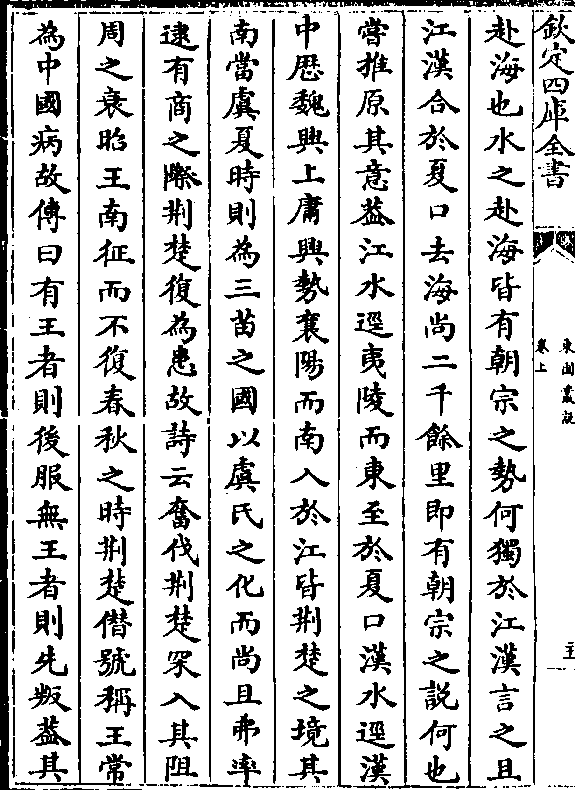 欽定四庫全書
東園叢說
卷上
五
赴海也水之赴海皆有朝宗之勢何獨於江漢言之且
江漢合於夏口去海尚二千餘里即有朝宗之説何也
嘗推原其意葢江水逕夷陵而東至於夏口漢水逕漢
中歴魏興上庸興勢襄陽而南入於江皆荆楚之境其
南當虞夏時則為三苗之國以虞氏之化而尚且弗率
逮有商之際荆楚復為患故詩云奮伐荆楚罙入其阻
周之衰昭王南征而不復春秋之時荆楚僣號稱王常
為中國病故傳曰有王者則後服無王者則先叛葢其